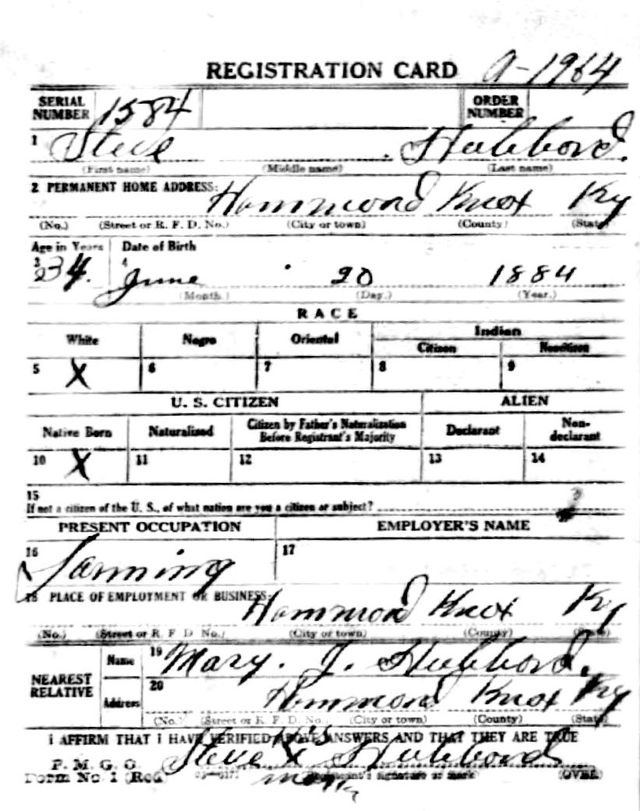 REGISTRATION CARD a-1964
SERIAL NUMBER 1584 ORDER NUMBER
1 Steve Hubbord.
(First name) (Middle name) (Last name)
2 PERMANENT HOME ADDRESS: Hammond Knox Ky
(No.) (Street or R. F. D. No.) (City or town) (County) (State)
Age in Years Date of Birth
3 34. 4 June 20 1884
(Month.) (Day.) (Year.)
RACE
White Negro Oriental Indian
Citizen Noncitizen
5 X 6 7 8 9
U. S. CITIZEN ALIEN
Native Born Naturalized Citizen by Father's Naturalization Before Registrant's Majority Declarant Non-declarant
10 X 11 12 13 14
15
If not a citizen of the U. S., of what nation are you a citizen or subject?
PRESENT OCCUPATION EMPLOYER'S NAME
16 Farming 17
18 PLACE OF EMPLOYMENT OR BUSINESS: Hammond Knox Ky
(No.) (Street or R. F. D. No.) (City or town) (County) (State)
NEAREST RELATIVE Name 19 Mary. J. Hubbord.
Address 20 Hammond Knox Ky
(No.) (Street or R. F. D. No.) (City or town) (County) (State)
I AFFIRM THAT I HAVE VERIFIED ABOVE ANSWERS AND THAT THEY ARE TRUE
P. M. G. O. Steve X his Hubbord
Form No. 1 (Red) mark (Registrant's signature or mark) (OVER)